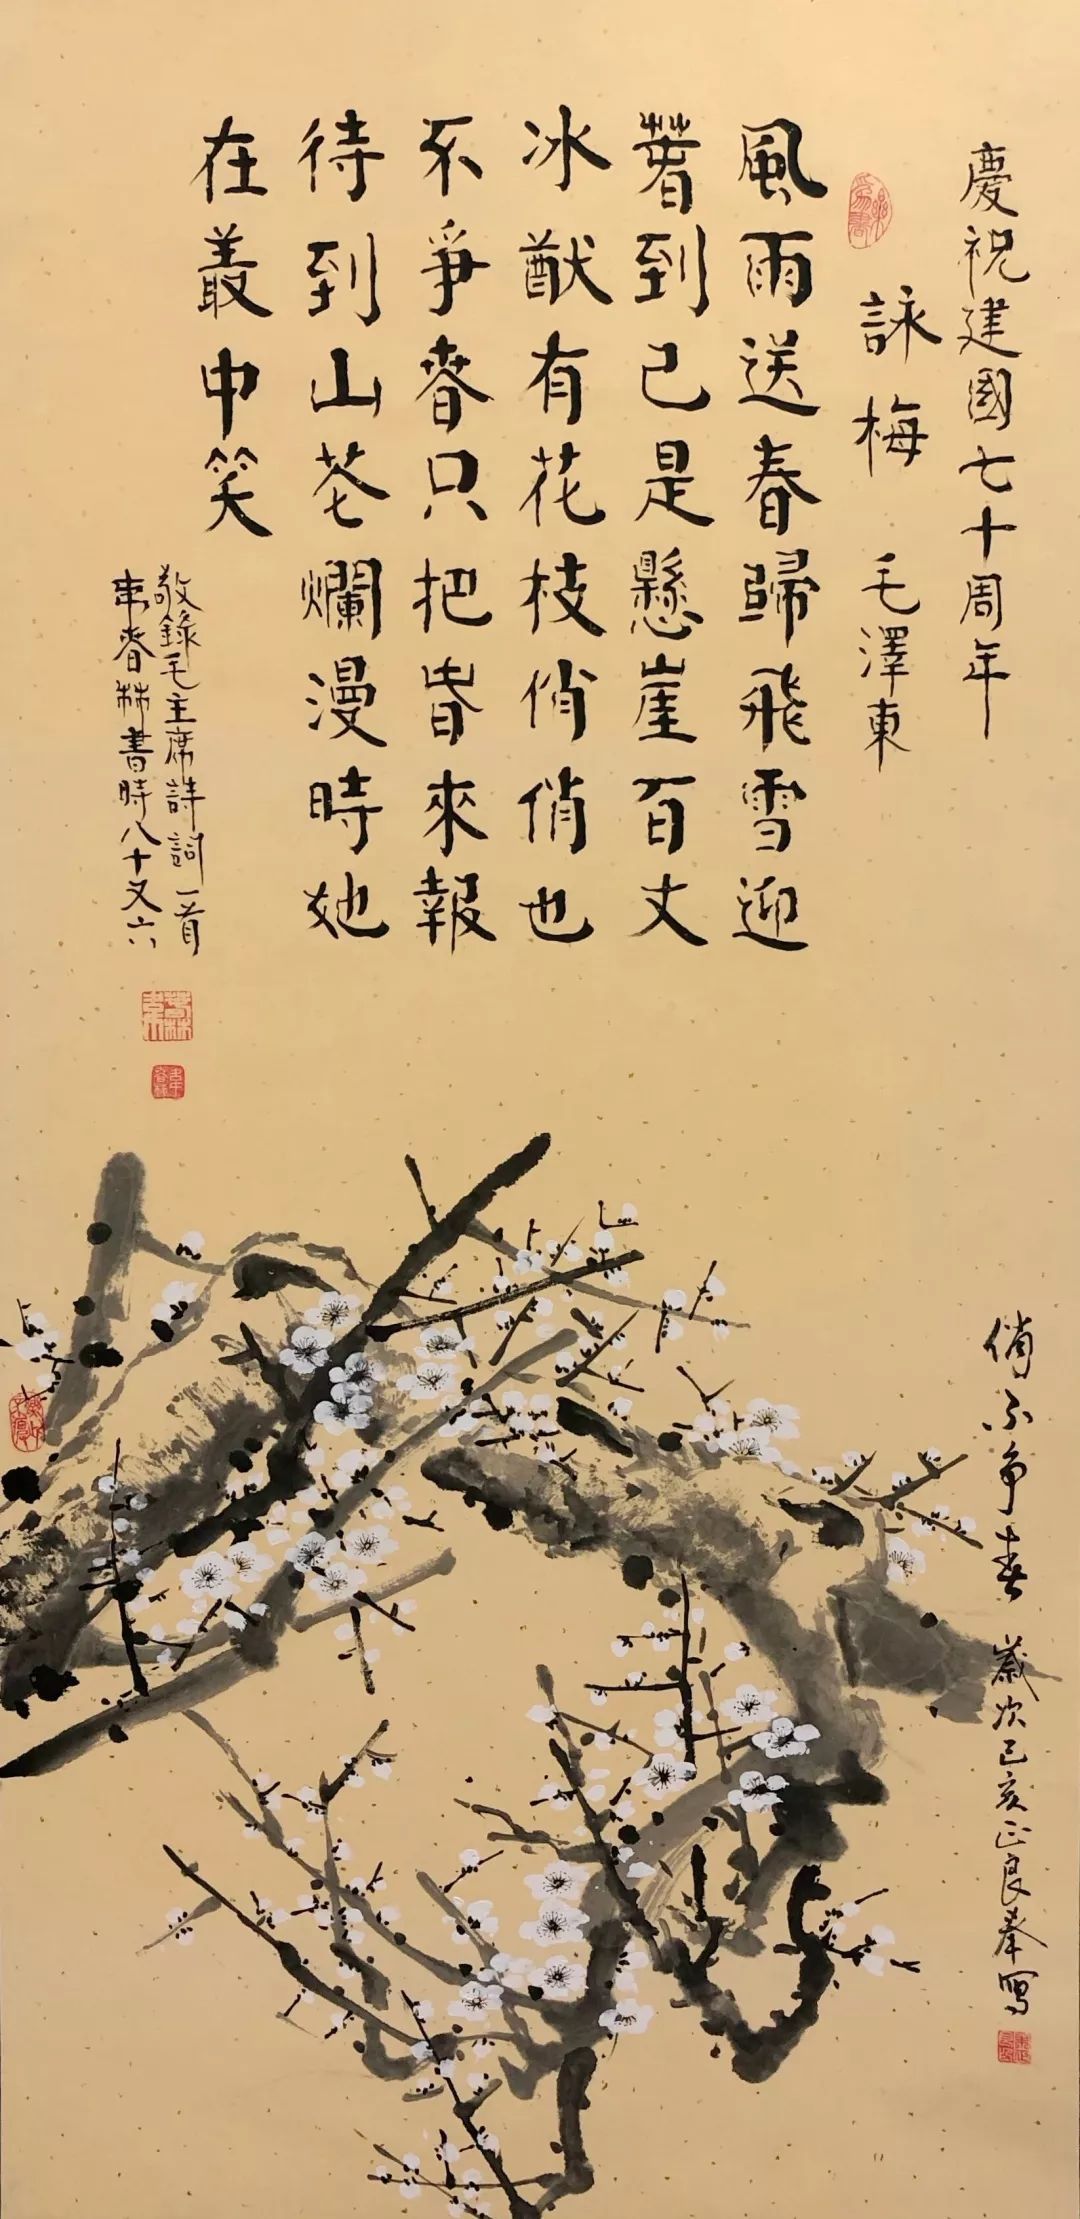 慶祝建國七十周年
詠梅 毛澤東
風雨送春歸飛雪迎
萅到已是懸崖百丈
冰猷有花枝俏俏也
不爭春只把春來報
待到山花爛漫時她
在叢中笑
敬錄毛主席詩詞一首
春林書時八十又六
俏不争春 歲次己亥正良奉寫